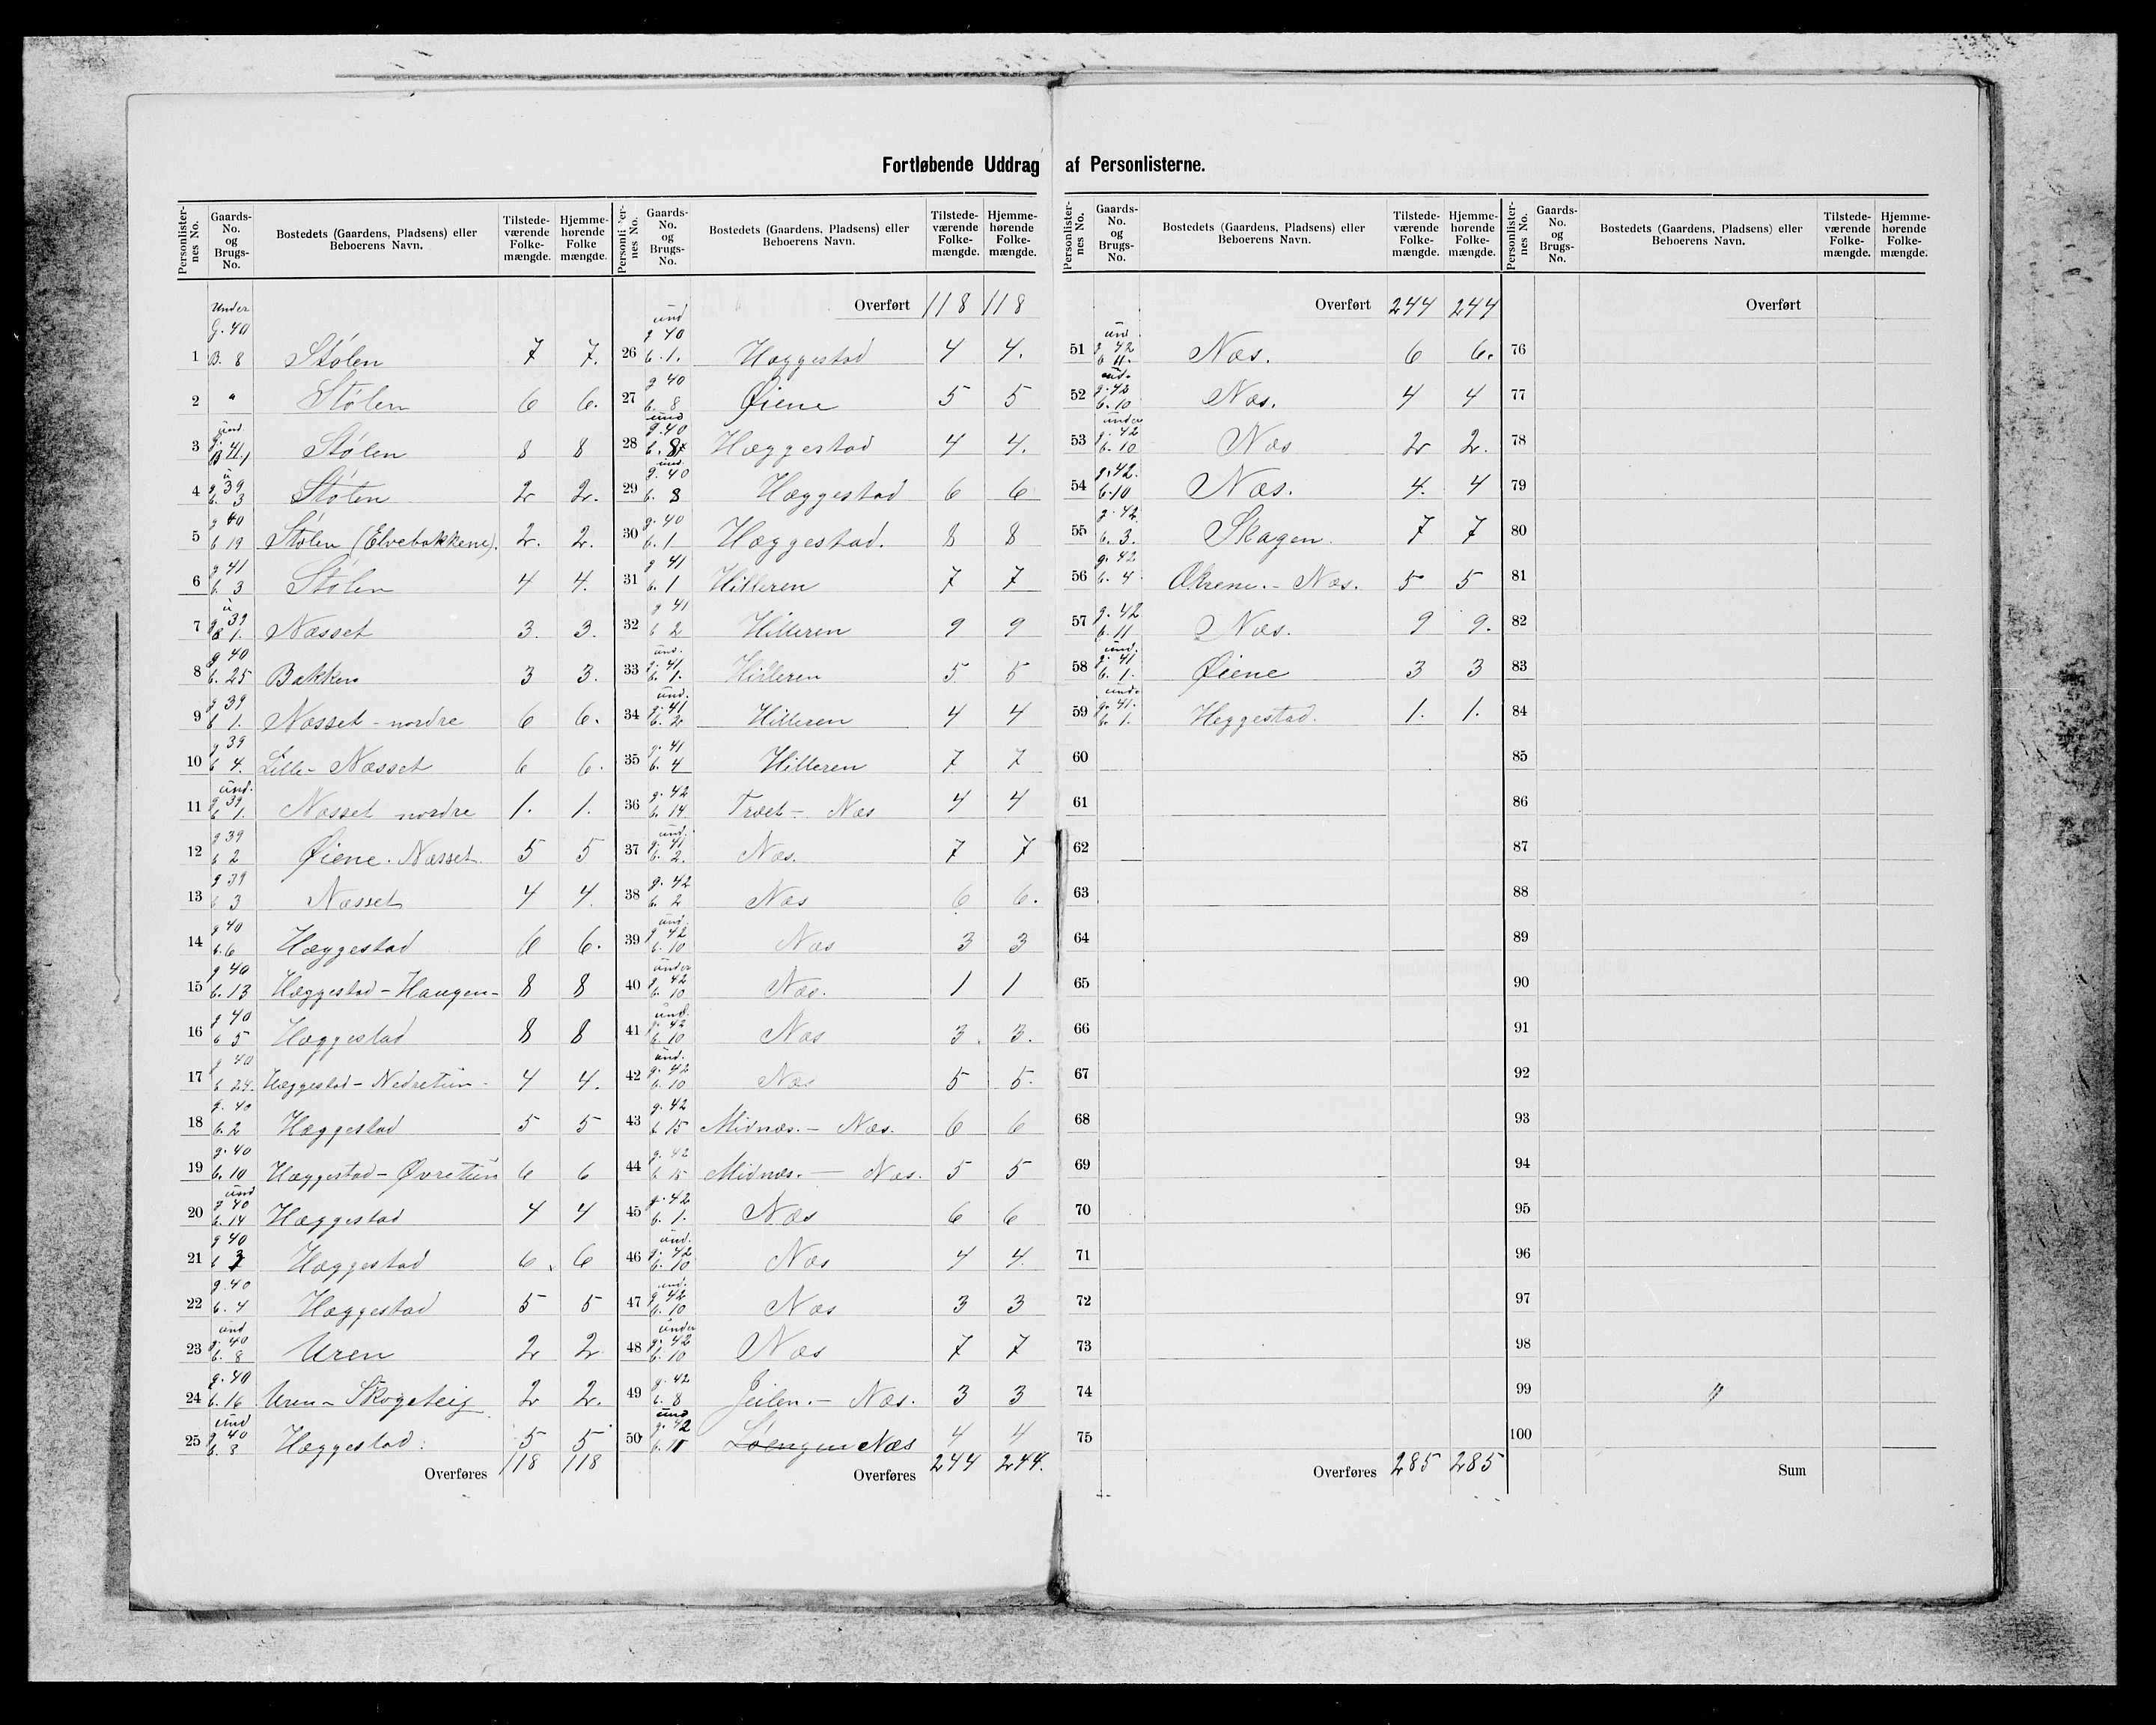 Fortløbende Uddrag af Personlisterne.
Personlisternes No. Gaards-No. og Brugs-No. Bostedets (Gaardens, Pladsens) eller Beboerens Navn. Tilstedeværende Folkemængde. Hjemmehørende Folkemængde.
1 Under G. 40 B. 8 Stølen 7 7.
2 " Stølen 6 6.
3 und. g. 41 B 1 Stølen 8 8
4 u g 39 b. 3 Stølen 2 2.
5 g 40 b 19 Stølen (Elvebakkene). 2. 2.
6 g 41 b. 3 Stølen 4 4.
7 u g 39 B 1. Næsset 3. 3.
8 g 40 b. 25 Bakken 3 3.
9 g 39 b 1. Næsset - nordre 6 6.
10 g 39 b 4. Lille - Næsset 6 6.
11 und. g 39 b 1. Næsset nordre 1. 1.
12 g 39 b 2 Øiene. Næsset. 5 5
13 g 39 b 3 Næsset 4 4.
14 g 40 b. 6 Hæggestad 6 6.
15 g 40 b. 13 Hæggestad - Haugen - 8 8
16 g 40 b 5 Hæggestad 8 8
17 g 40 b 24. Hæggestad - Nedretun - 4 4.
18 g. 40 b. 2 Hæggestad 5 5
19 g. 40 b. 10 Hæggestad - Øvretun 6 6
20 und g 40 b. 14 Hæggestad 4 4
21 g 40 b Hæggestad 6. 6
22 g. 40 b. 4 Hæggestad 5 5
23 und g. 40 b. 8 Uren 2 2
24 g. 40 b. 16 Uren - Skogeteig 2 2.
25 und g 40 b. 8 Hæggestad. 5 5
Overføres 118 118
Overført 118 118
26 und g 40 b. 1. Hæggestad 4 4.
27 g 40 b. 8 Øiene 5 5
28 und g. 40 b. 8 Hæggestad 4 4.
29 und. g. 40 b. 8 Hæggestad 6 6
30 g. 40 b. 1 Hæggestad. 8 8
31 g 41 b. 1 Hilleren 7 7
32 g 41 b 2 Hilleren 9 9
33 und. g. 41 b. 1. Hilleren 5 5
34 und. g. 41 b. 2 Hilleren 4 4
35 g. 41 b. 4 Hilleren 7 7
36 g. 42 b. 14. Træet - Næs 4 4
37 und. g. 41 b. 2. Næs. 7 7
38 g. 42 b. 2 Næs 6 6.
39 und. g. 42 b. 10 Næs 3 3
40 under g. 42 b. 10 Næs. 1 1
41 und. g. 42 b. 10 Næs 3. 3.
42 und. g. 42 b. 10 Næs 5 5.
43 g. 42 b 15 Midnæs. - Næs. 6 6
44 g. 42 b 15 Midnæs. - Næs. 5 5
45 g. 42 b. 1. Næs 6 6
46 und. g. 42 b. 10 Næs 4 4.
47 und. g 42 b. 10 Næs 3 3
48 under g. 42 b. 10 Næs 7 7
49 g. 42 b. 8 Jeilen. - Næs. 3 3
50 und g. 42 b. 11 Løengen Næs 4 4
Overføres 244 244.
Personlisternes No. Gaards-No. og Brugs-No. Bostedets (Gaardens, Pladsens) eller Beboerens Navn. Tilstedeværende Folkemængde. Hjemmehørende Folkemængde.
Overført 244 244
51 und g 42 b 11. Næs. 6 6.
52 und. g. 42 b. 10 Næs. 4 4
53 under g. 42 b. 10 Næs 2 2.
54 g. 42. b. 10 Næs. 4. 4
55 g. 42. b. 3. Skagen. 7 7
56 g. 42 b. 4 Økrene. - Næs. 5 5
57 g. 42 b. 11 Næs. 9 9.
58 und. g. 41 b. 1. Øiene 3 3
59 und. g. 41. b. 1. Heggestad. 1. 1.
60
61
62
63
64
65
66
67
68
69
70
71
72
73
74
75
Overføres 285 285
Overført
76
77
78
79
80
81
82
83
84
85
86
87
88
89
90
91
92
93
94
95
96
97
98
99
100
Sum